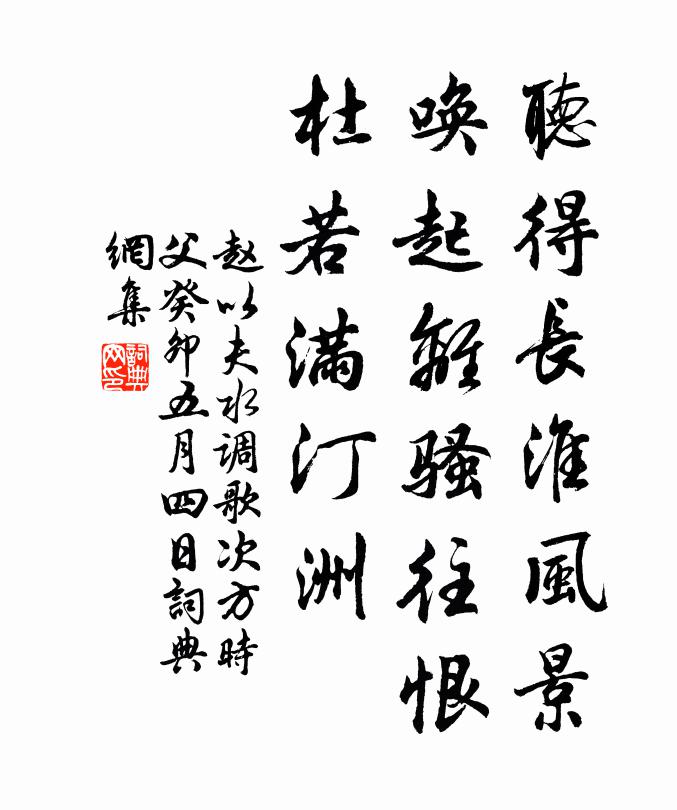 聽得長淮風景
喚起離騷往恨
杜若滿汀洲
赵以夫水调歌次方時
父癸卯五月四日詞典
網集
詞典
网印